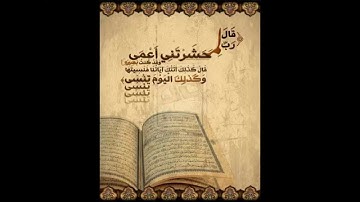 ﴿قَالَ
رَبِّ
لِمَ
حَشَرْتَنِي أَعْمَى
وَقَدْ كُنْتُ بَصِيرًا
قَالَ كَذَلِكَ أَتَتْكَ آيَاتُنَا فَنَسِيتَهَا
وَكَذَلِكَ الْيَوْمَ تُنْسَى﴾
تُنْسَى
تُنْسَى